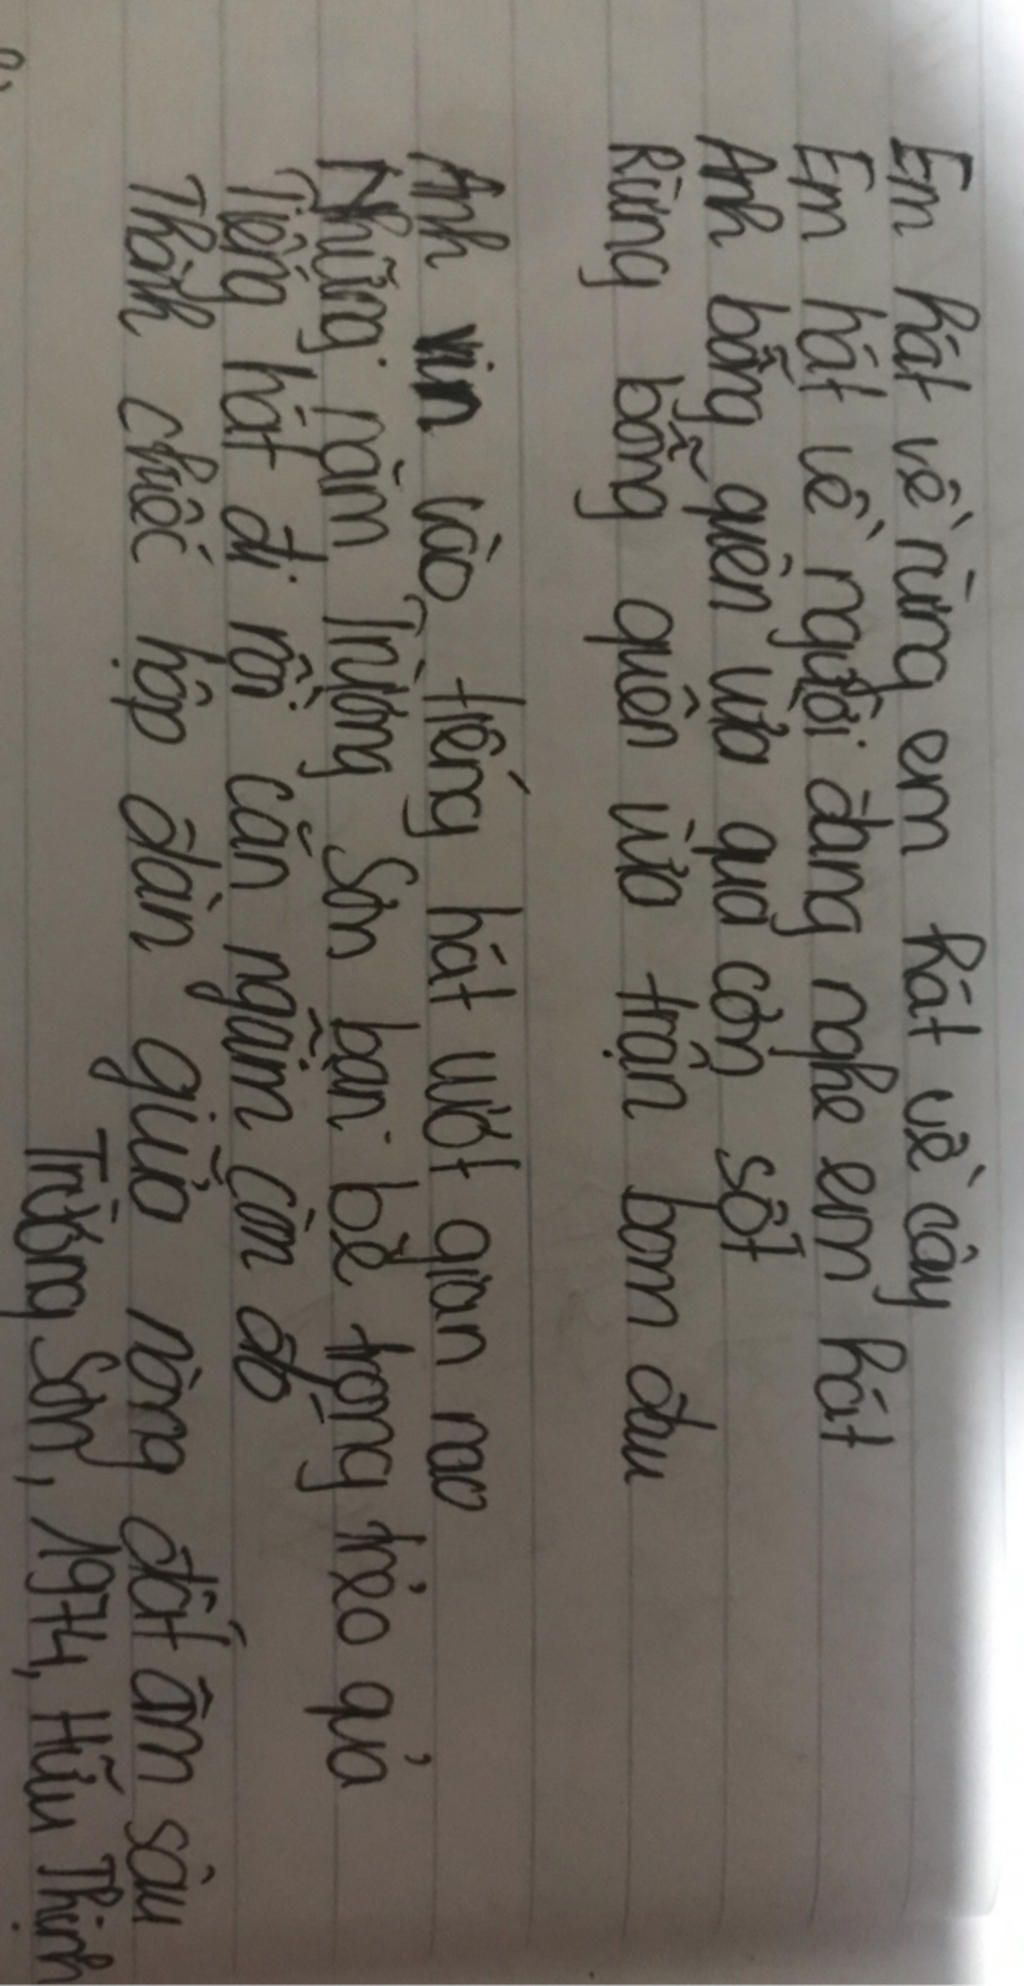 Em hát về rừng em hát về cây
Em hát về người đang nghe em hát
Anh bỗng quên vừa qua cơn sốt
Rừng bỗng quên vừa trận bom đau
Anh vin vào tiếng hát ướt gian nao
Những năm Trường Sơn bạn bè trọng trẻo quả
Tiếng hát đi rồi căn ngầm còn đó
Thành chiếc hộp đàn giữa lòng đất âm sâu
Trường Sơn, 1974, Hữu Thỉnh